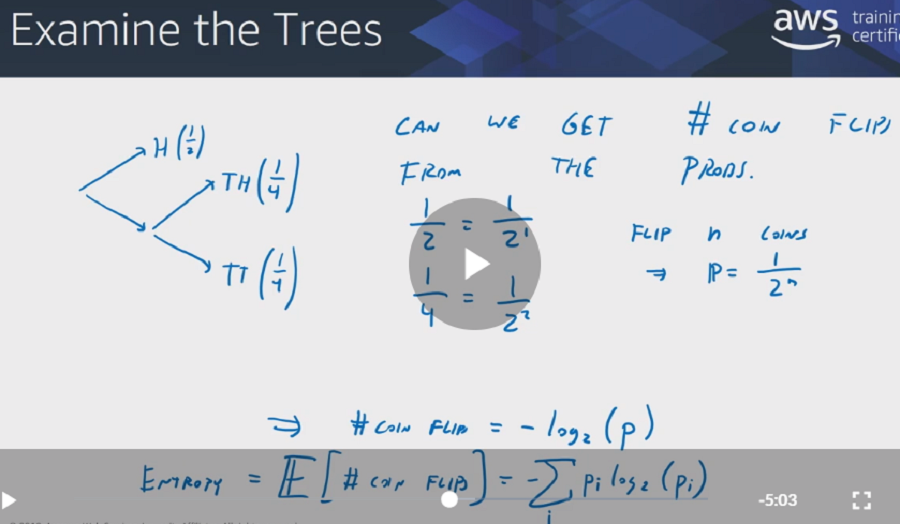 Examine the Trees
aws trainin
certifi
H (1/2)
TH (1/4)
TT (1/4)
CAN WE GET # COIN FLIPS
FROM THE PROBS.
1/2 = 1/2¹
1/4 = 1/2²
FLIP n COINS
⇒ P = 1/2ⁿ
⇒ # COIN FLIP = - log₂ (p)
ENTROPY = 𝔼 [# COIN FLIPS] = - ∑ᵢ pᵢ log₂ (pᵢ)
-5:03